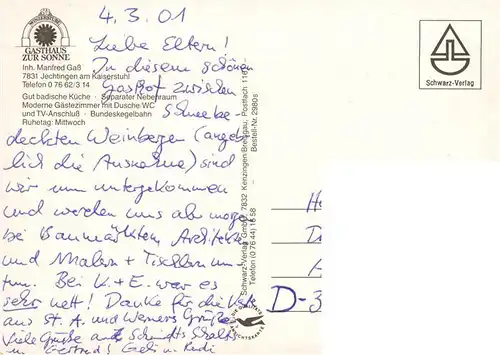 WINZERSTUBE
GASTHAUS
ZUR SONNE
Inh. Manfred Gaß
7831 Jechtingen am Kaiserstuhl
Telefon 0 76 62/3 14
Gut badische Küche · Separater Nebenraum
Moderne Gästezimmer mit Dusche/WC
und TV-Anschluß · Bundeskegelbahn
Ruhetag: Mittwoch
4.3.01
Liebe Eltern!
In diesem schönen
Gasthof zwischen
Schneebe-
deckten Weinbergen (angeb-
lich die Ausnahme) sind
wir nun untergekommen
und werden uns ab morgen
bei Baumärkten, Architekten
und Malern + Tischlern um-
tun. Bei K.+E. war es
sehr nett! Danke für die
aus St. A. und Werners Grüße
Viele Grüße
Gertrud
Schwarz-Verlag GmbH, 7832 Kenzingen/Breisgau, Postfach 116
Telefon (0 76 44) 16 58
Bestell-Nr. 2980s
Schwarz-Verlag
D-3